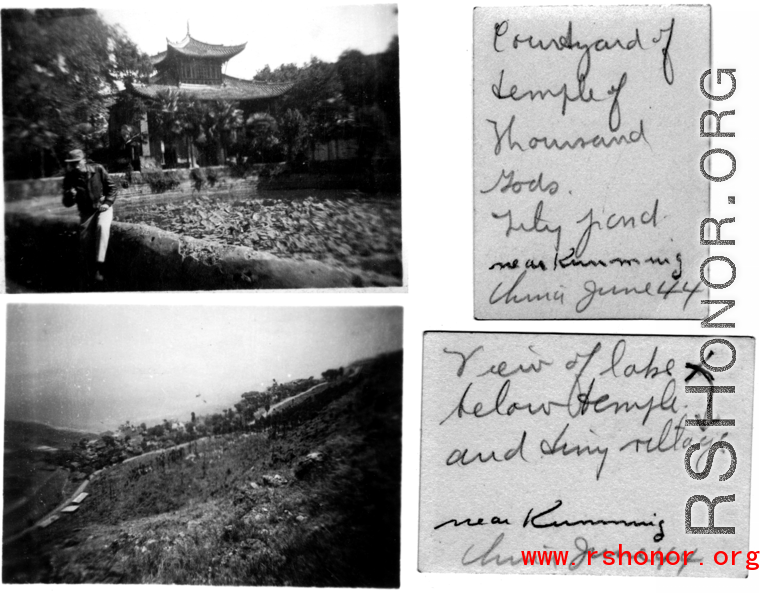 Courtyard of
temple of
Thousand
Gods.
Lily pond
near Kunming
China June 44
View of lake
below temple.
and tiny village.
near Kunming
China June 44
RSHONOR.ORG
www.rshonor.org